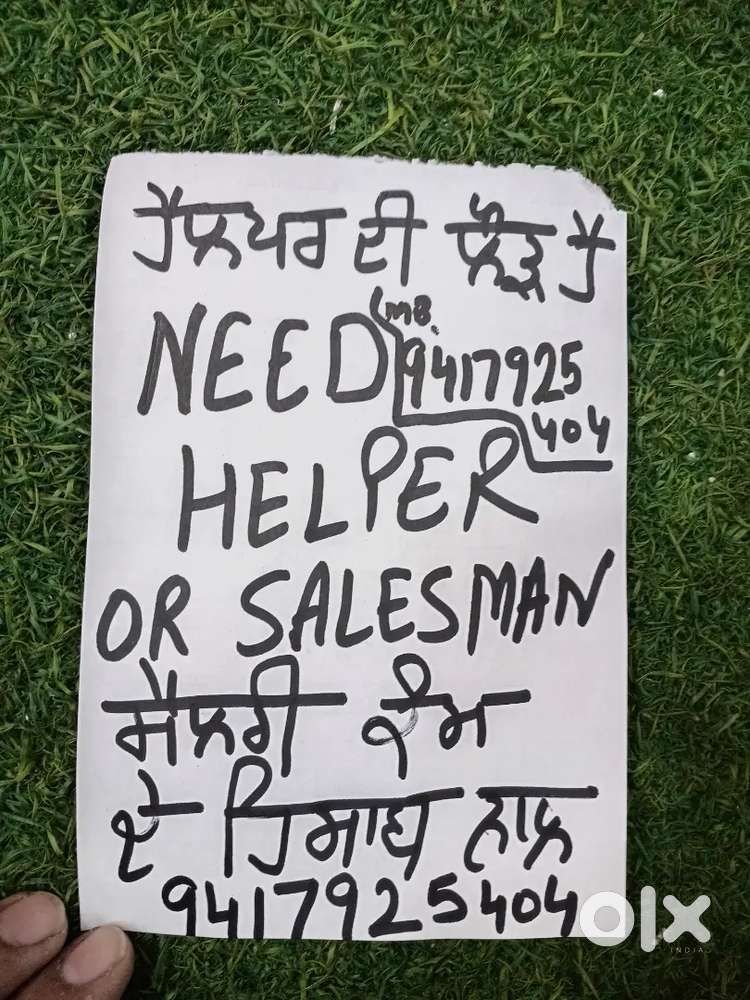 ਹੈਲਪਰ ਦੀ ਲੋੜ ਹੈ
NEED
MB.
9417925
404
HELPER
OR SALESMAN
ਸੈਲਰੀ ਕੰਮ
ਦੇ ਹਿਸਾਬ ਨਾਲ
9417925404
olx
INDIA